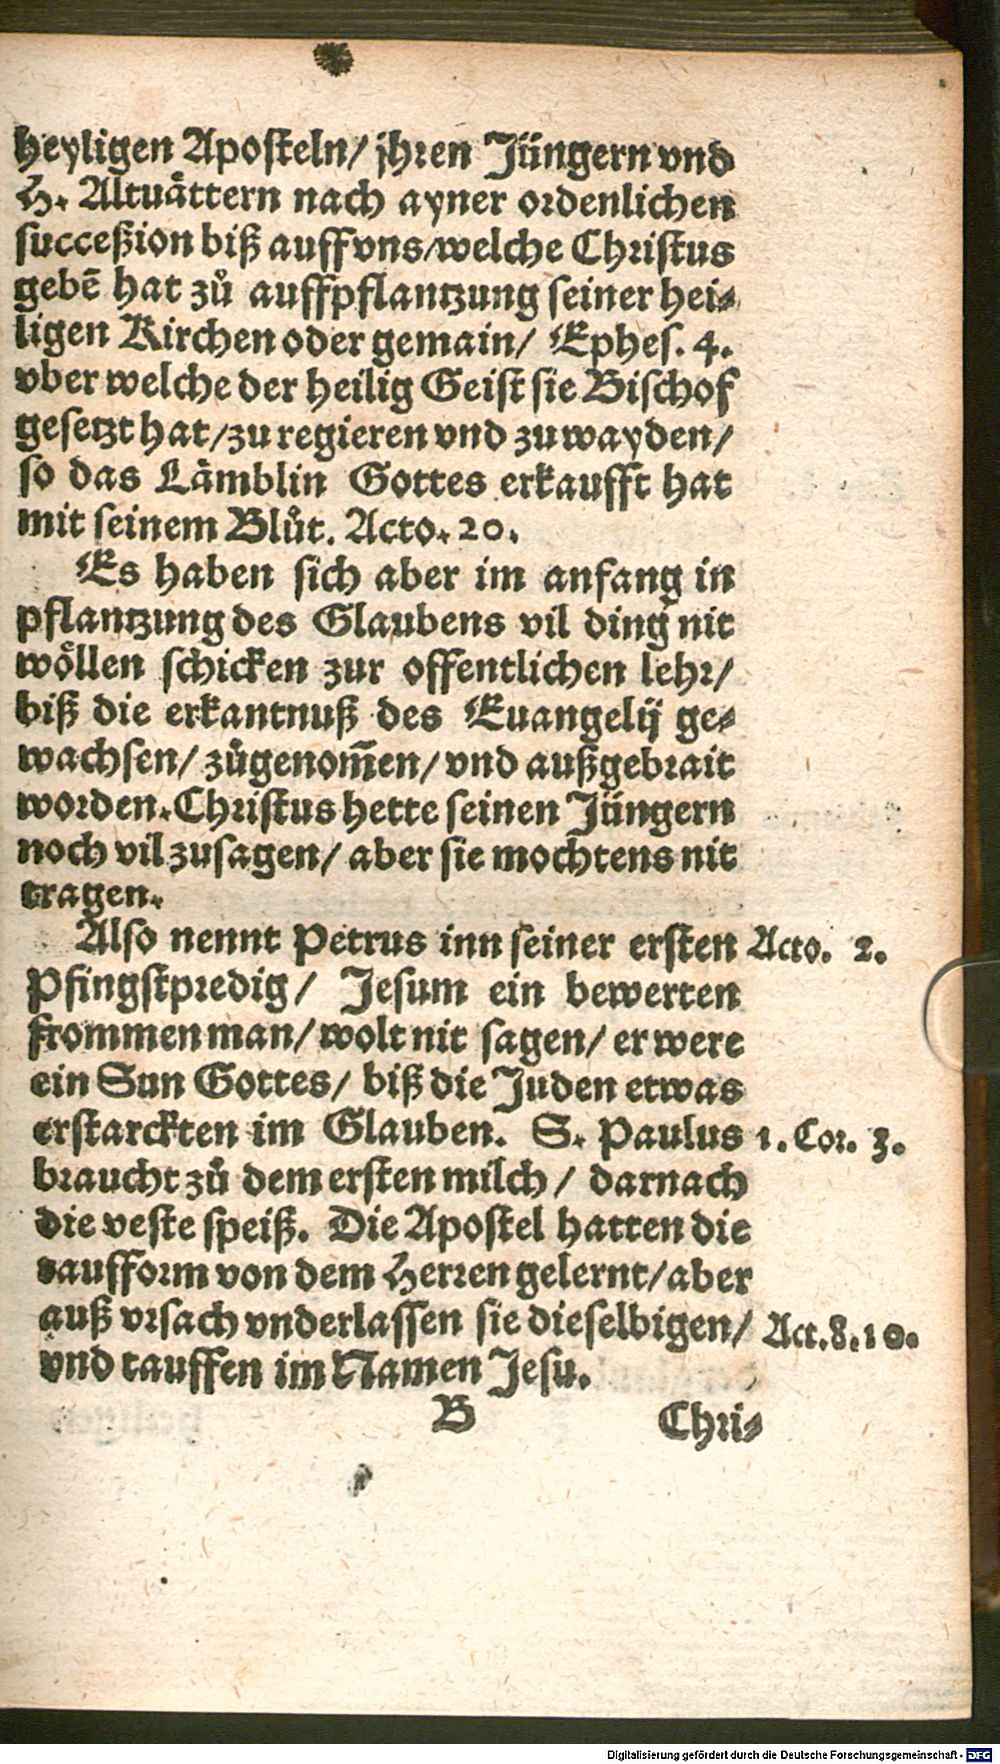 heyligen Apoſteln/ jhren Jüngern vnd
H. Altuättern nach ayner ordenlichen
ſucceßion biß auff vns/welche Chriſtus
gebē hat zů auffpflantzung ſeiner hei-
ligen Kirchen oder gemain/ Epheſ. 4.
vber welche der heilig Geiſt ſie Biſchof
geſetzt hat/zu regieren vnd zu wayden/
ſo das Lämblin Gottes erkaufft hat
mit ſeinem Blůt. Acto. 20.
Es haben ſich aber im anfang in
pflantzung des Glaubens vil ding nit
wöllen ſchicken zur offentlichen lehr/
biß die erkantnuß des Euangelij ge-
wachſen/ zůgenom̄en/ vnd außgebrait
worden. Chriſtus hette ſeinen Jüngern
noch vil zuſagen/ aber ſie mochtens nit
tragen.
Alſo nennt Petrus inn ſeiner erſten Acto. 2.
Pfingſtpredig/ Jeſum ein bewerten
frommen man/ wolt nit ſagen/ er were
ein Sun Gottes/ biß die Juden etwas
erſtarckten im Glauben. S. Paulus 1. Cor. 3.
braucht zů dem erſten milch/ darnach
die veſte ſpeiß. Die Apoſtel hatten die
tauffform von dem Herren gelernt/ aber
auß vrſach vnderlaſſen ſie dieſelbigen/ Act.8.10.
vnd tauffen im Namen Jeſu.
B Chri-
Digitalisierung gefördert durch die Deutsche Forschungsgemeinschaft - DFG